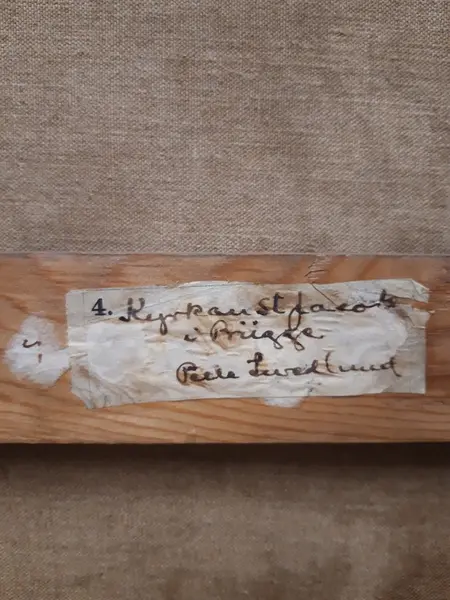 4. Kyrkan St Jacob
i Brügge
Pelle Swedlund